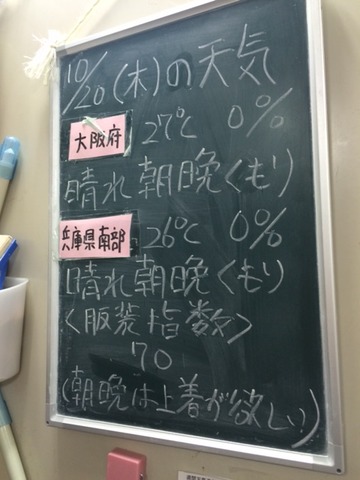 10/20(木)の天気
大阪府 27℃ 0%
晴れ 朝晩くもり
兵庫県南部 26℃ 0%
晴れ 朝晩くもり
<服装指数>
70
(朝晩は上着が欲しい)